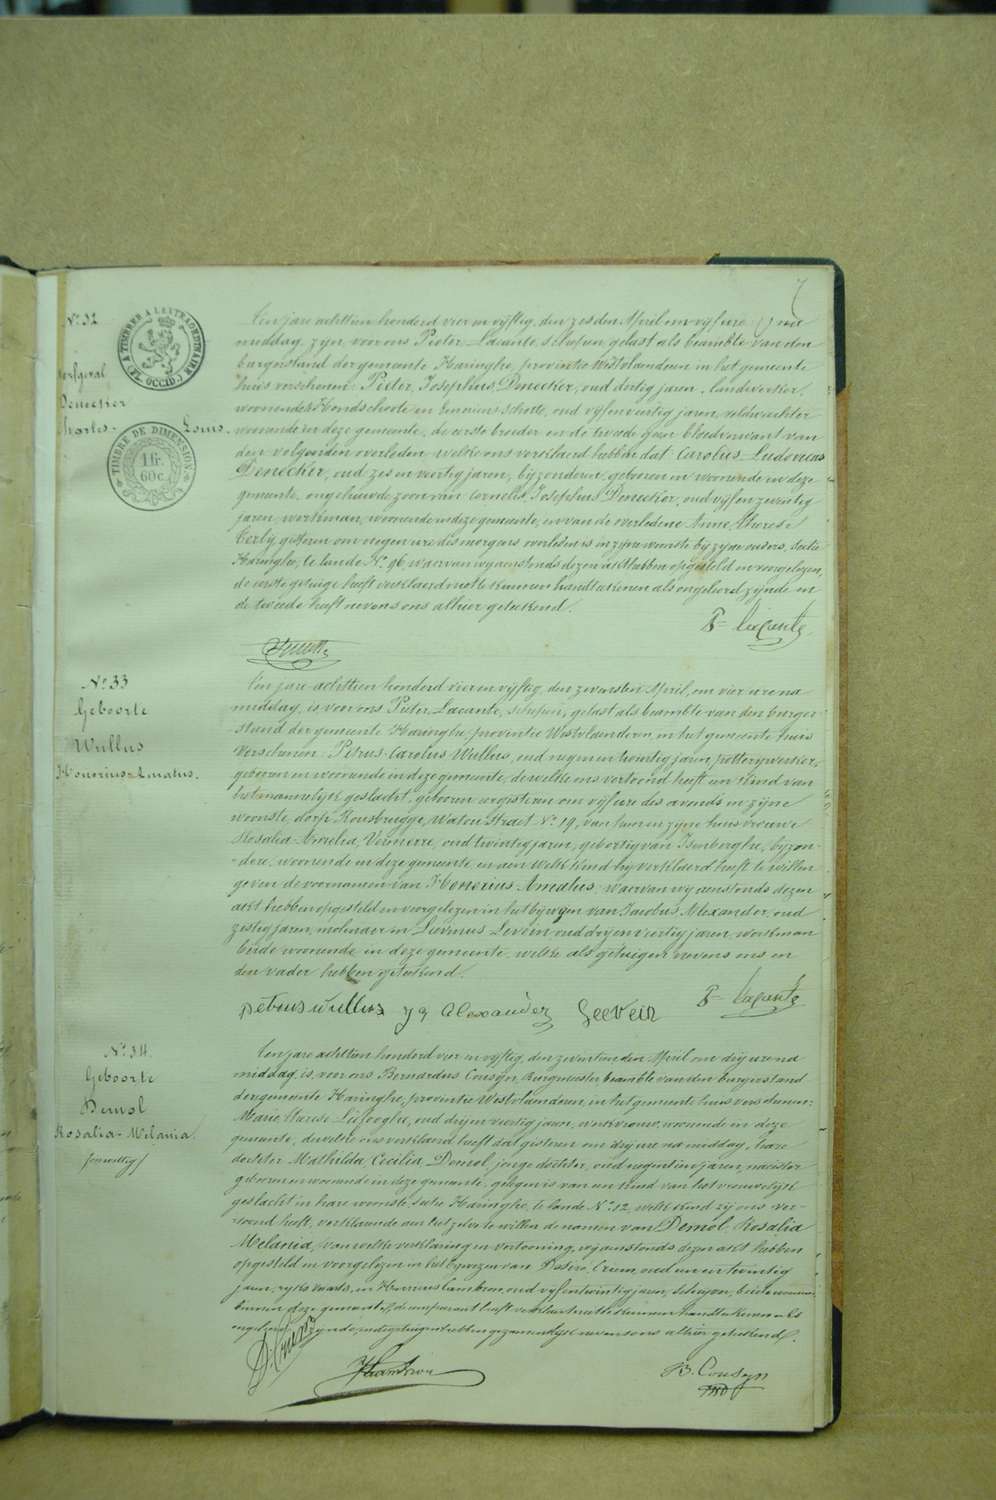 7
N.º 32
Sterfgeval
Denecker
Charles-Louis.
TIMBRE DE DIMENSION
1 fr.
60 c.
Een jare achttien honderd vier en vijftig, den zesden April om vijf ure na
middag, zijn voor ons Pieter Lacante, schepen, gelast als beambte van den
burgerstand der gemeente Haringhe, provintie Westvlaenderen in het gemeente
huis verschenen: Pieter, Josephus, Denecker, oud dertig jaren, landwerker,
woonende te Hondschoote en Schotte, oud vijf en veertig jaren, veldwachter
woonende in deze gemeente, de eerste broeder en de tweede geen bloedverwant van
den volgenden overleden welke ons verklaerd hebben dat Carolus Ludovicus
Denecker, oud zes en veertig jaren, bijzonderen, geboren en woonende in deze
gemeente, ongehuwde zoon van Cornelis, Josephus Denecker, oud vijf en zeventig
jaren, werkman, woonende in deze gemeente, en van de overledene Anne, Therese
gisteren om negen ure des morgens overleden is in zijne woonste bij zijne ouders, sectie
Haringhe, te lande N.º 96, waervan wij aenstonds dezen akt hebben opgesteld en voorgelezen,
de eerste getuige heeft verklaerd niet te kunnen handteekenen als ongeleerd zijnde en
de tweede heeft nevens ons alhier geteekend.
P. Lacante
Schotte
N.º 33
Geboorte
Wullus
Honorius-Amatus.
Een jare achttien honderd vier en vijftig, den zevensten April, om vier ure na
middag, is voor ons Pieter Lacante, schepen, gelast als beambte van den burger-
stand der gemeente Haringhe, provintie Westvlaenderen, in het gemeente huis
verschenen: Petrus-Carolus Wullus, oud negen en twintig jaren, potterijwerker,
geboren en woonende in deze gemeente, dewelke ons vertoond heeft een kind van
het mannelijk geslacht, geboren eergisteren om vijf ure des avonds in zijne
woonste, dorp Rousbrugge, Watou straet N.º 19, van hem en zijne huisvrouwe
Rosalia-Amelia, Vermerre, oud twintig jaren, geboortig van Isenberghe, bijzon-
dere, woonende in deze gemeente, en aen welk kind hij verklaerd heeft te willen
geven de voornamen van Honorius Amatus, waervan wij aenstonds dezen
akt hebben opgesteld en voorgelezen in het bijwezen van Jacobus Alexander, oud
zestig jaren, molenaer en Livinus Levein, oud drij en veertig jaren, werkman
beide woonende in deze gemeente, welke als getuigen nevens ons en
den vader hebben geteekend.
petrus wullus ja Alexander Leevein P. Lacante
N.º 34.
Geboorte
Demol
Rosalia-Melania.
(onwettig)
Een jare achttien honderd vier en vijftig, den zeventienden April om drij ure na
middag, is voor ons Bernardus Cousyn, Burgmeester beambte van den burgerstand
der gemeente Haringhe, provintie Westvlaenderen, in het gemeente huis verschenen:
Marie, Therese Liefooghe, oud drij en veertig jaren, werkvrouw, woonende in deze
gemeente, dewelke ons verklaerd heeft dat gisteren om drij ure na middag, hare
dochter Mathilda, Cecilia Demol, jonge dochter, oud negentien jaren, naeister
geboren en woonende in deze gemeente, gelegen is van een kind van het vrouwelijk
geslacht in hare woonste, sectie Haringhe, te lande N.º 12, welk kind zij ons ver-
toond heeft, verklaerende aen het zelve te willen de namen van Demol Rosalia
Melania, van welke verklaring en vertooning, wij aenstonds dezen akt hebben
opgesteld en voorgelezen in het bijwezen van Desire Crum, oud een en twintig
jaren, en Henricus Cambron, oud vijf en twintig jaren, beide woonende
binnen deze gemeente, de comparant heeft verklaerd niet te kunnen handteekenen als
ongeleerd zijnde, en de getuigen hebben gezamentlijk nevens ons alhier geteekend.
HCambron
B. Cousyn